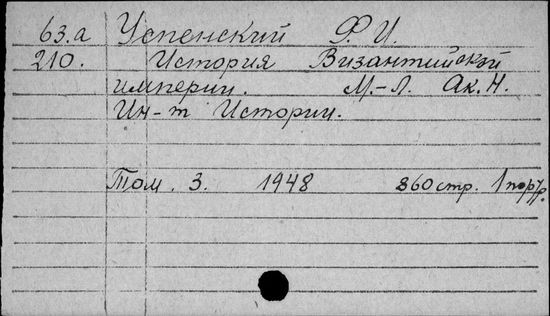 63.а Успенский Ф.И.
210. История Византийской
империи. М.-Л. Ак.Н.
Ин-т Истории.
Том. 3. 1948 860стр. 1портр.